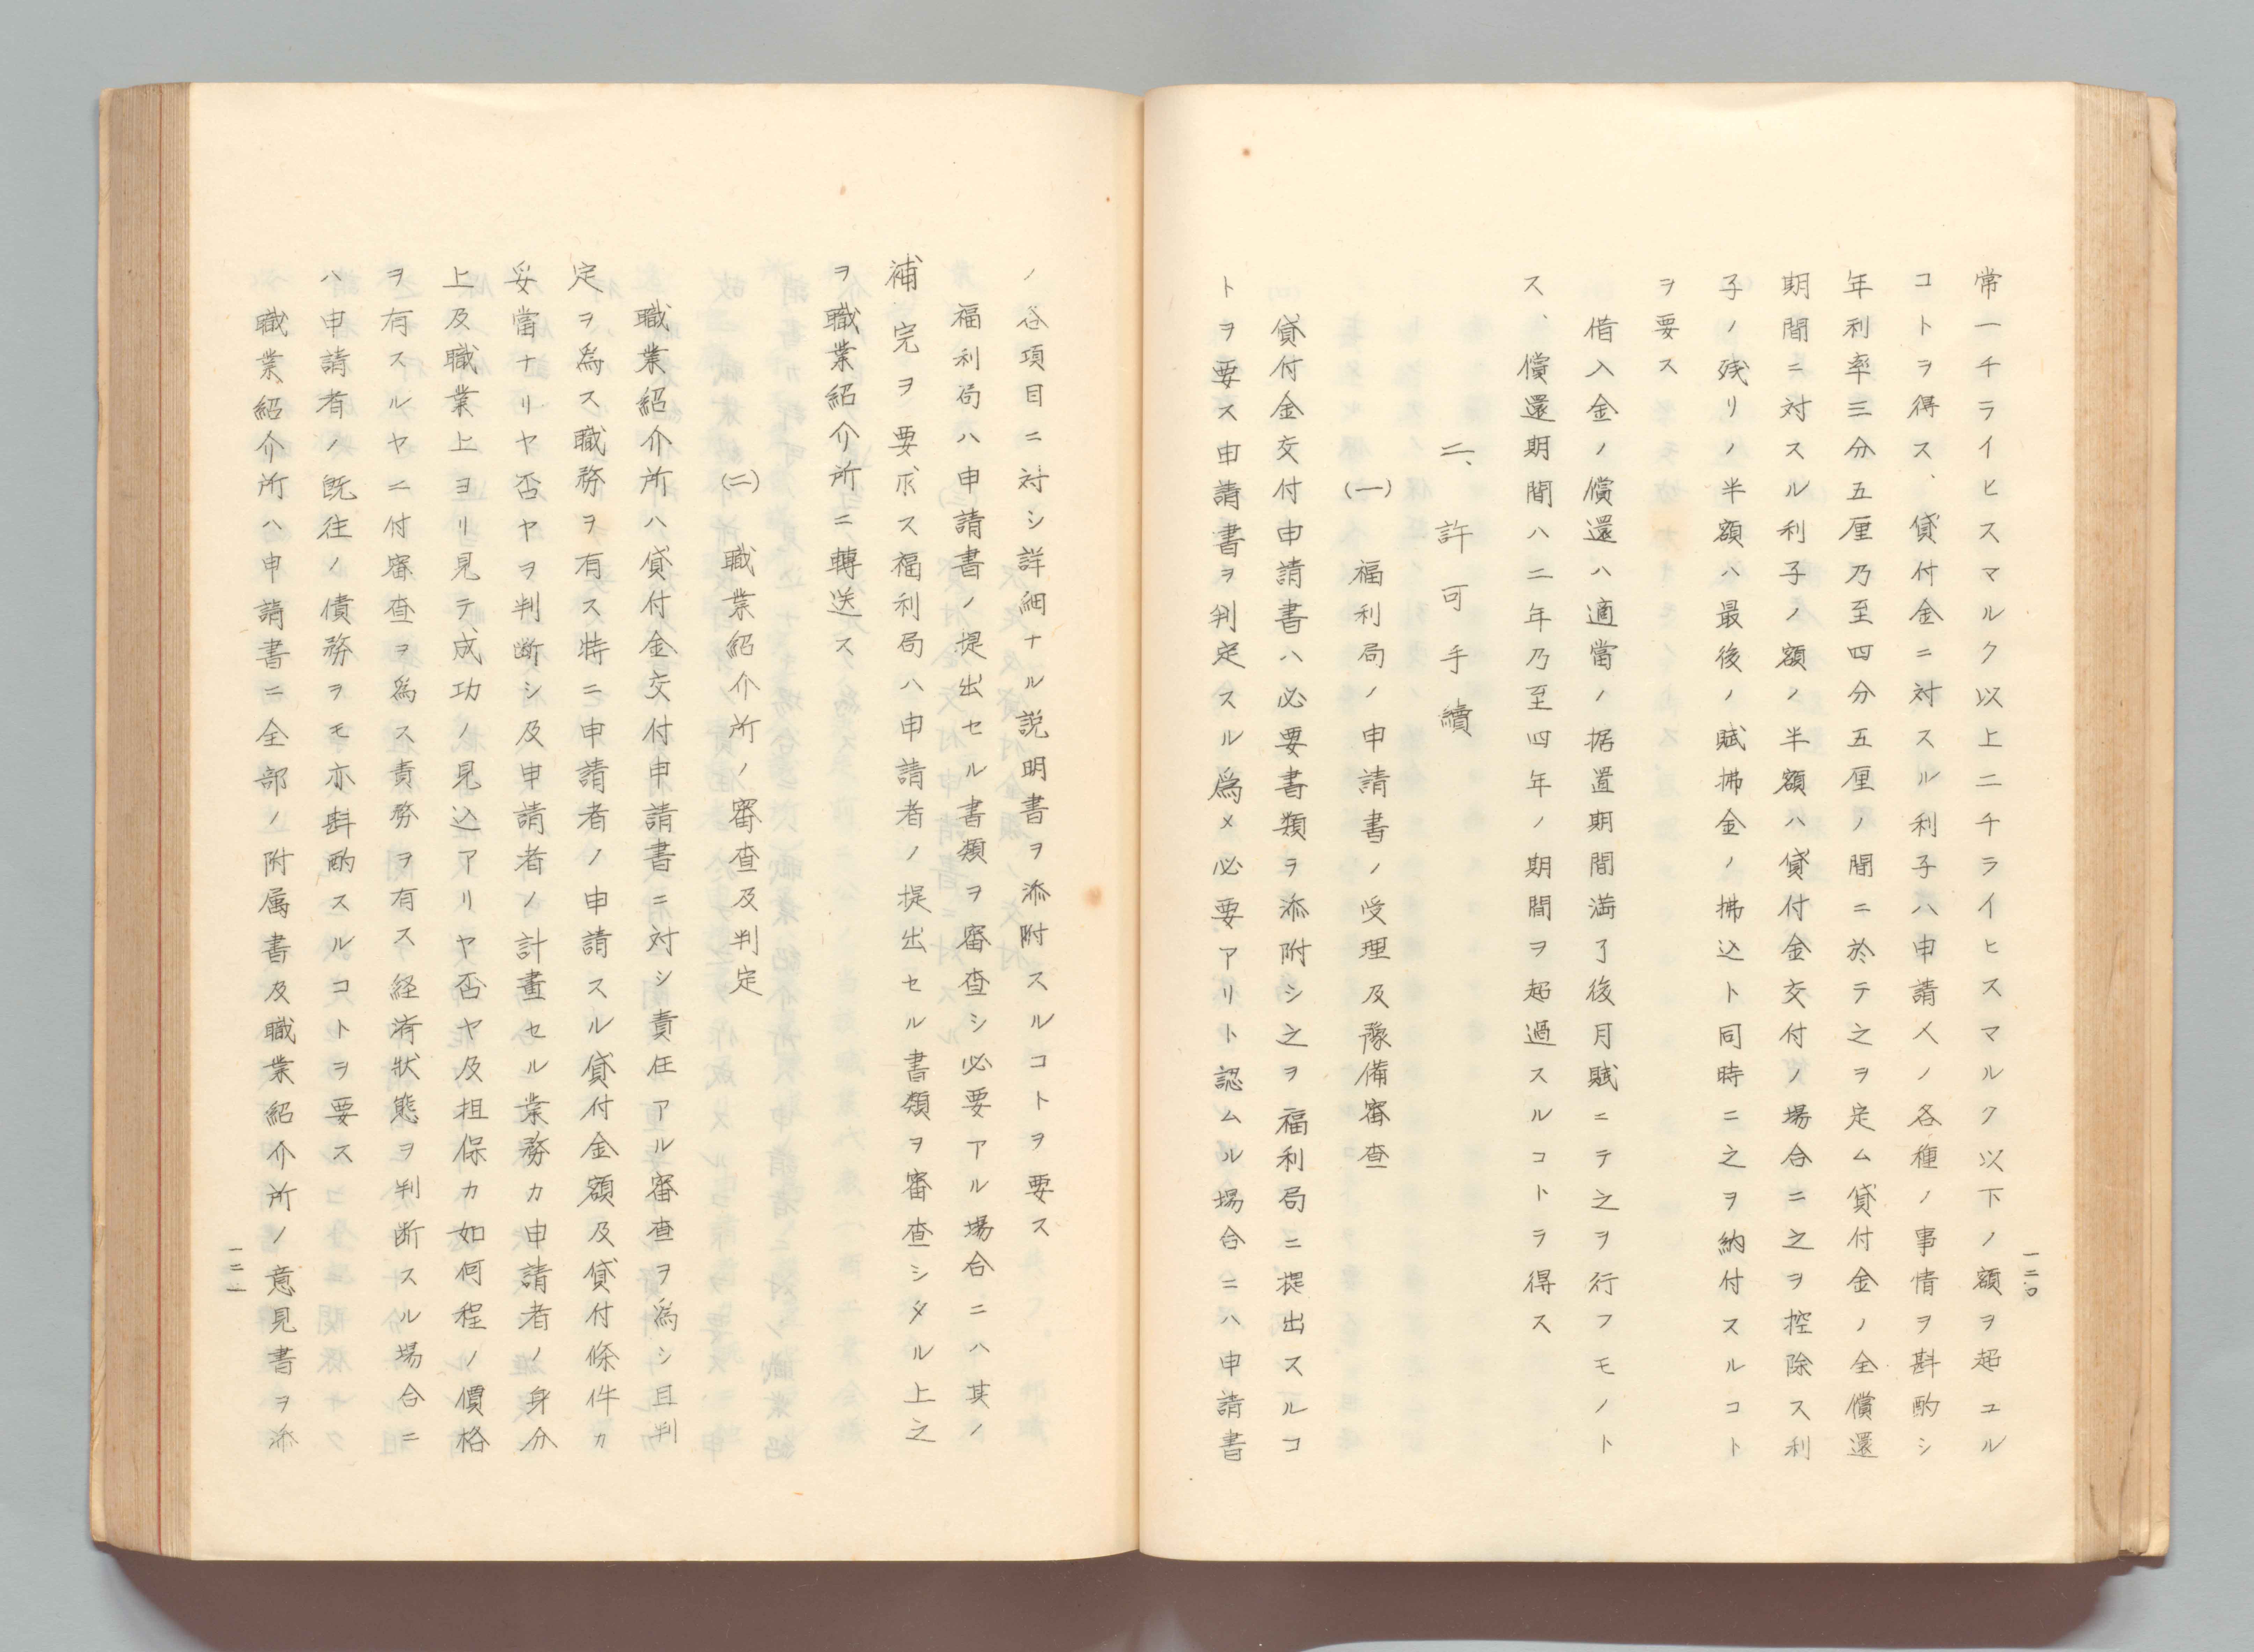 常一チライヒスマルク以上二チライヒスマルク以下ノ額ヲ超ユル
コトヲ得ス、貸付金ニ対スル利子ハ申請人ノ各種ノ事情ヲ斟酌シ
年利率三分五厘乃至四分五厘ノ間ニ於テ之ヲ定ム貸付金ノ全償還
期間ニ対スル利子ノ額ノ半額ハ貸付金交付ノ場合ニ之ヲ控除ス利
子ノ残リノ半額ハ最後ノ賦拂金ノ拂込ト同時ニ之ヲ納付スルコト
ヲ要ス
借入金ノ償還ハ適當ノ据置期間満了後月賦ニテ之ヲ行フモノト
ス、償還期間ハ二年乃至四年ノ期間ヲ超過スルコトヲ得ス
二、許可手續
(一) 福利局ノ申請書ノ受理及豫備審査
貸付金交付申請書ハ必要書類ヲ添附シ之ヲ福利局ニ提出スルコ
トヲ要ス申請書ヲ判定スル為メ必要アリト認ムル場合ニハ申請書
一二〇
ノ各項目ニ対シ詳細ナル説明書ヲ添附スルコトヲ要ス
福利局ハ申請書ノ提出セル書類ヲ審査シ必要アル場合ニハ其ノ
補完ヲ要求ス福利局ハ申請者ノ提出セル書類ヲ審査シタル上之
ヲ職業紹介所ニ轉送ス
(二) 職業紹介所ノ審査及判定
職業紹介所ハ貸付金交付申請書ニ対シ責任アル審査ヲ為シ且判
定ヲ為ス職務ヲ有ス特ニ申請者ノ申請スル貸付金額及貸付條件カ
妥當ナリヤ否ヤヲ判断シ及申請者ノ計畫セル業務カ申請者ノ身分
上及職業上ヨリ見テ成功ノ見込アリヤ否ヤ及担保カ如何程ノ價格
ヲ有スルヤニ付審査ヲ為ス責務ヲ有ス経済狀態ヲ判断スル場合ニ
ハ申請者ノ既往ノ債務ヲモ亦斟酌スルコトヲ要ス
職業紹介所ハ申請書ニ全部ノ附属書及職業紹介所ノ意見書ヲ添
一二一